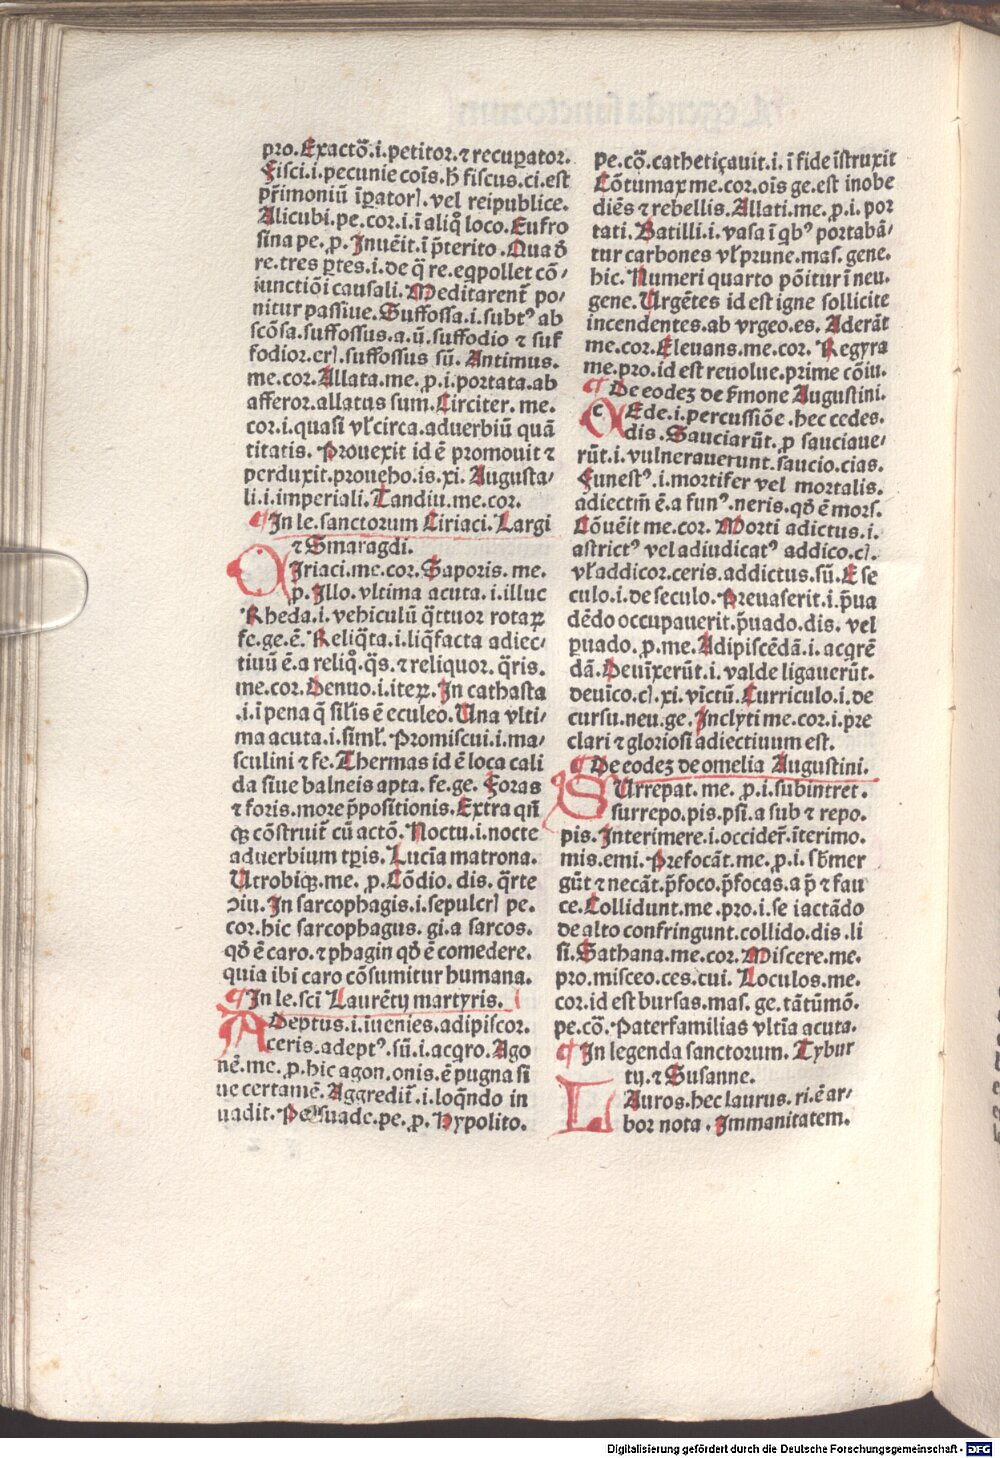 pro. Exactõ.i.petitor.⁊ recuꝑator.
Fisci.i.pecunie cois.h̃ fiscus.ci.est
pr̃imoniũ ĩꝑatorꝭ.vel reipublice.
Alicubi.pe.cor.i.ĩ aliq̊ loco. Eufro
sina pe.ꝓ. Inuẽit.ĩ p̃terito. Qua ð
re.tres ꝑtes.i.de q̃ re.eq̃pollet cõ/
iunctiõi causali. Meditarent̃ po/
nitur passiue. Suffossa.i.subtꝰ ab
scõsa.suffossus.a.ũ.suffodio ⁊ suf
fodior.erꝭ.suffossus sũ. Antimus.
me.cor. Allata.me.ꝓ.i.portata.ab
afferor.allatus sum. Circiter.me.
cor.i.quasi vľ circa.aduerbiũ quã
titatis. Prouexit id ẽ promouit ⁊
perduxit.proueho.is.xi. Augusta/
li.i.imperiali. Tandiu.me.cor.
¶ In le.sanctorum Ciriaci. Largi
⁊ Smaragdi.
Iriaci.me.cor. Saporis.me.
p. Illo.vltima acuta.i.illuc
Rheda.i.vehiculũ q̃ttuor rotaꝝ
fe.ge.ẽ. Reliq̃ta.i.liq̃facta adiec/
tiuũ ẽ.a reliq̊.q̃s.⁊ reliquor.q̃ris.
me.cor. Denuo.i.iteꝝ. In cathasta
.i.ĩ pena q̃ silis ẽ eculeo. Una vlti/
ma acuta.i.simľ. Promiscui.i.ma/
sculini ⁊ fe. Thermas id ẽ loca cali
da siue balneis apta.fe.ge. Foras
⁊ foris.more p̃positionis. Extra qñ
qꝫ cõstruit̃ cũ actõ. Noctu.i.nocte
aduerbium tꝑis. Lucĩa matrona.
Utrobiqꝫ.me.ꝓ. Cõdio.dis.q̃rte
ɔiu. In sarcophagis.i.sepulcrꝭ pe.
cor.hic sarcophagus.gi.a sarcos.
qð ẽ caro.⁊ phagin qð ẽ comedere.
quia ibi caro cõsumitur humana.
¶ In le.sci̇̃ Laurẽtij martyris.
ADeptus.i.ĩuenies.adipiscor.
ceris.adeptꝰ.sũ.i.acq̃ro. Ago
nẽ.me.ꝓ.hic agon.onis.ẽ pugna si
ue certamẽ. Aggredit̃.i.loq̃ndo in
uadit. Persuade.pe.ꝓ. Hypolito.
pe.cõ.catheti çauit.i.ĩ fide ĩstruxit
Cõtumax me.cor.oĩs ge.est inobe
diẽs ⁊ rebellis. Allati.me.ꝓ.i.por
tati. Batilli.i.vasa ĩ qbꝰ portabã/
tur carbones vľ prune.mas.gene.
hic. Numeri quarto põitur ĩ neu.
gene. Urgẽtes id est igne sollicite
incendentes.ab vrgeo.es. Aderãt
me.cor. Eleuans.me.cor. Regyra
me.pro.id est reuolue.prime cõiu.
¶ De eodeꝫ de s̃mone Augustini.
CEde.i.percussiõe.hec cedes.
dis. Sauciarũt.ꝓ sauciaue/
rũt.i.vulnerauerunt.saucio.cias.
Funestꝰ.i.mortifer vel mortalis.
adiectiñ ẽ.a funꝰ.neris.qð ẽ mors.
Cõuẽit me.cor. Morti adictus.i.
astrictꝰ vel adiudicatꝰ addico.cꝭ.
vľ addicor.ceris.addictus.sũ. E se
culo.i.de seculo. Preuaserit.i.p̃ua
dẽdo occupauerit.p̃uado.dis.vel
ꝑuado.ꝓ.me. Adipiscẽdã.i.acq̃rẽ
dã. Deuĩxerũt.i.valde ligauerũt.
deuĩco.cꝭ.xi.victũ. Curriculo.i.de
cursu.neu.ge. Inclyti me.cor.i.pre
clari ⁊ gloriosi adiectiuum est.
¶ De eodeꝫ de omelia Augustini.
SUrrepat.me.ꝓ.i.subintret.
surrepo.pis.psi.a sub ⁊ repo.
pis. Interimere.i.occider̃.ĩterimo.
mis.emi. Prefocãt.me.ꝓ.i.sb̃mer
gũt ⁊ necãt.p̃foco.p̃focas.a p̃ ⁊ fau
ce. Collidunt.me.pro.i.se iactãdo
de alto confringunt.collido.dis.li
si. Sathana.me.cor. Miscere.me.
pro.misceo.ces.cui. Loculos.me.
cor.id est bursas.mas.ge.tãtũmõ.
pe.cõ. Paterfamilias vltĩa acuta.
¶ In legenda sanctorum. Tybur
tij.⁊ Susanne.
LAuros.hec laurus.ri.ẽ ar/
bor nota. Immanitatem.
Digitalisierung gefördert durch die Deutsche Forschungsgemeinschaft - DFG